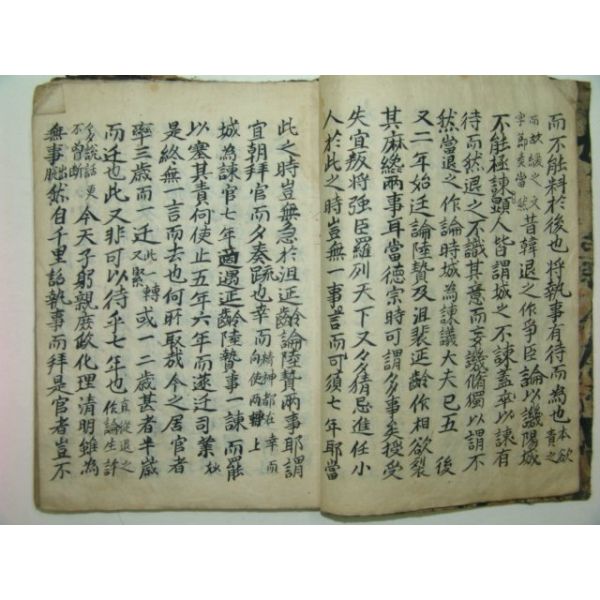 而不能料於後也將執事有待而為也本欲責之
而故緩之文字節奏當然昔韓退之作爭臣論以譏陽城
不能極諫顯人皆謂城之不諫盖卒以諫有
待而然退之不識其意而妄譏脩獨以謂不
然當退之作論時城為諫議大夫已五後
又二年始廷論陸贄及沮裴延齡作相欲裂
其麻終兩事耳當德宗時可謂多事矣授受
失宜叛將强臣羅列天下又多猜忌進任小
人於此之時豈無一事言而可須七年耶當
此之時豈無急於沮延齡論陸贄兩事耶謂
宜朝拜官而夕奏疏也幸而精神都在幸而向使兩轉上
城為諫官七年適遇延齡陸贄事一諫而罷
以塞其責向使止五年六年而遂迁司業
是終無一言而去也何所取哉今之居官者
率三歲而一迁此一轉又緊或一二歲甚者半歲
而迁也此又非可以待乎七年也直從退之作論生許
多說話更不曾斷今天子躬親庶政化理清明雖為
無事出脫然自千里詔執事而拜是官者豈不